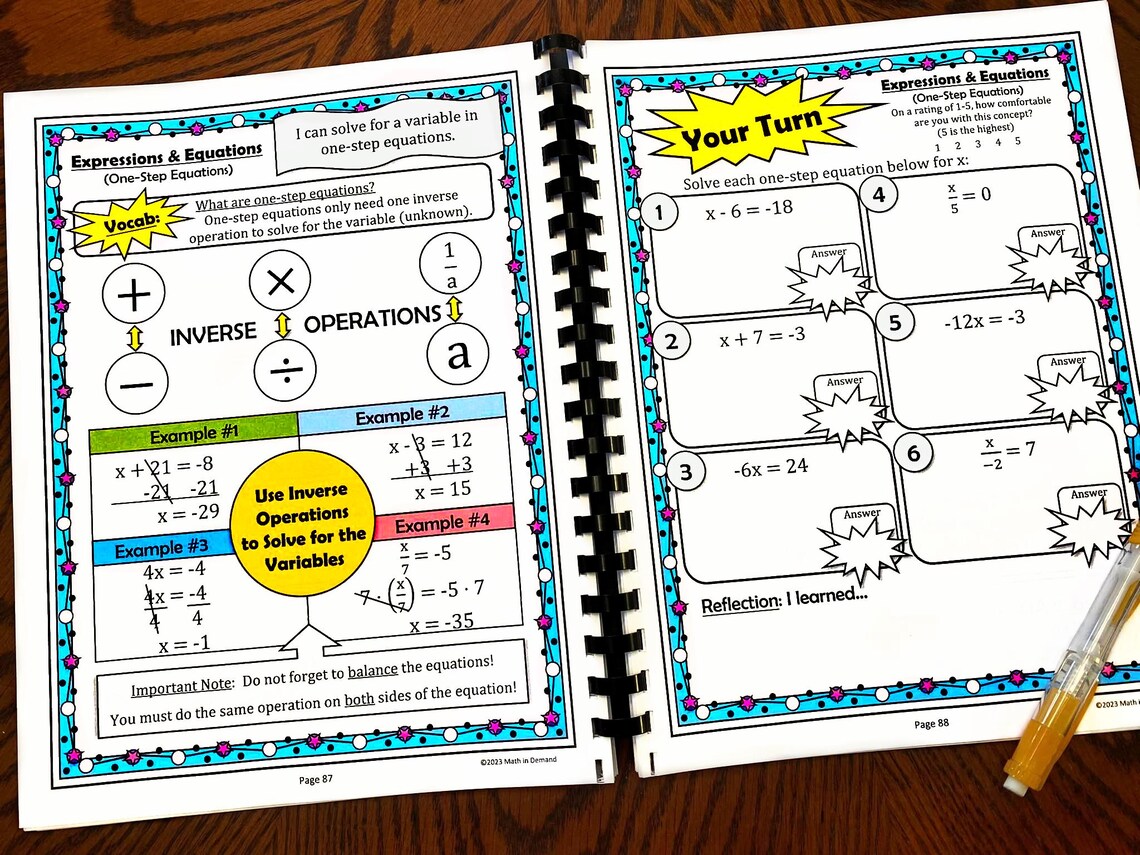 Expressions & Equations
(One-Step Equations)
I can solve for a variable in
one-step equations.
Vocab:
What are one-step equations?
One-step equations only need one inverse
operation to solve for the variable (unknown).
+
×
1
a
INVERSE OPERATIONS
−
÷
a
Example #1
x + 21 = -8
-21 -21
x = -29
Example #2
x - 3 = 12
+3 +3
x = 15
Use Inverse
Operations
to Solve for the
Variables
Example #3
4x = -4
4x = -4
4 4
x = -1
Example #4
x
7 = -5
7 · (x/7) = -5 · 7
x = -35
Important Note: Do not forget to balance the equations!
You must do the same operation on both sides of the equation!
©2023 Math in Demand
Page 87
Your Turn
Expressions & Equations
(One-Step Equations)
On a rating of 1-5, how comfortable
are you with this concept?
(5 is the highest)
1 2 3 4 5
Solve each one-step equation below for x:
1
x - 6 = -18
Answer
2
x + 7 = -3
Answer
3
-6x = 24
Answer
4
x
5 = 0
Answer
5
-12x = -3
Answer
6
x
−2 = 7
Answer
Reflection: I learned...
Page 88
©2023 Math